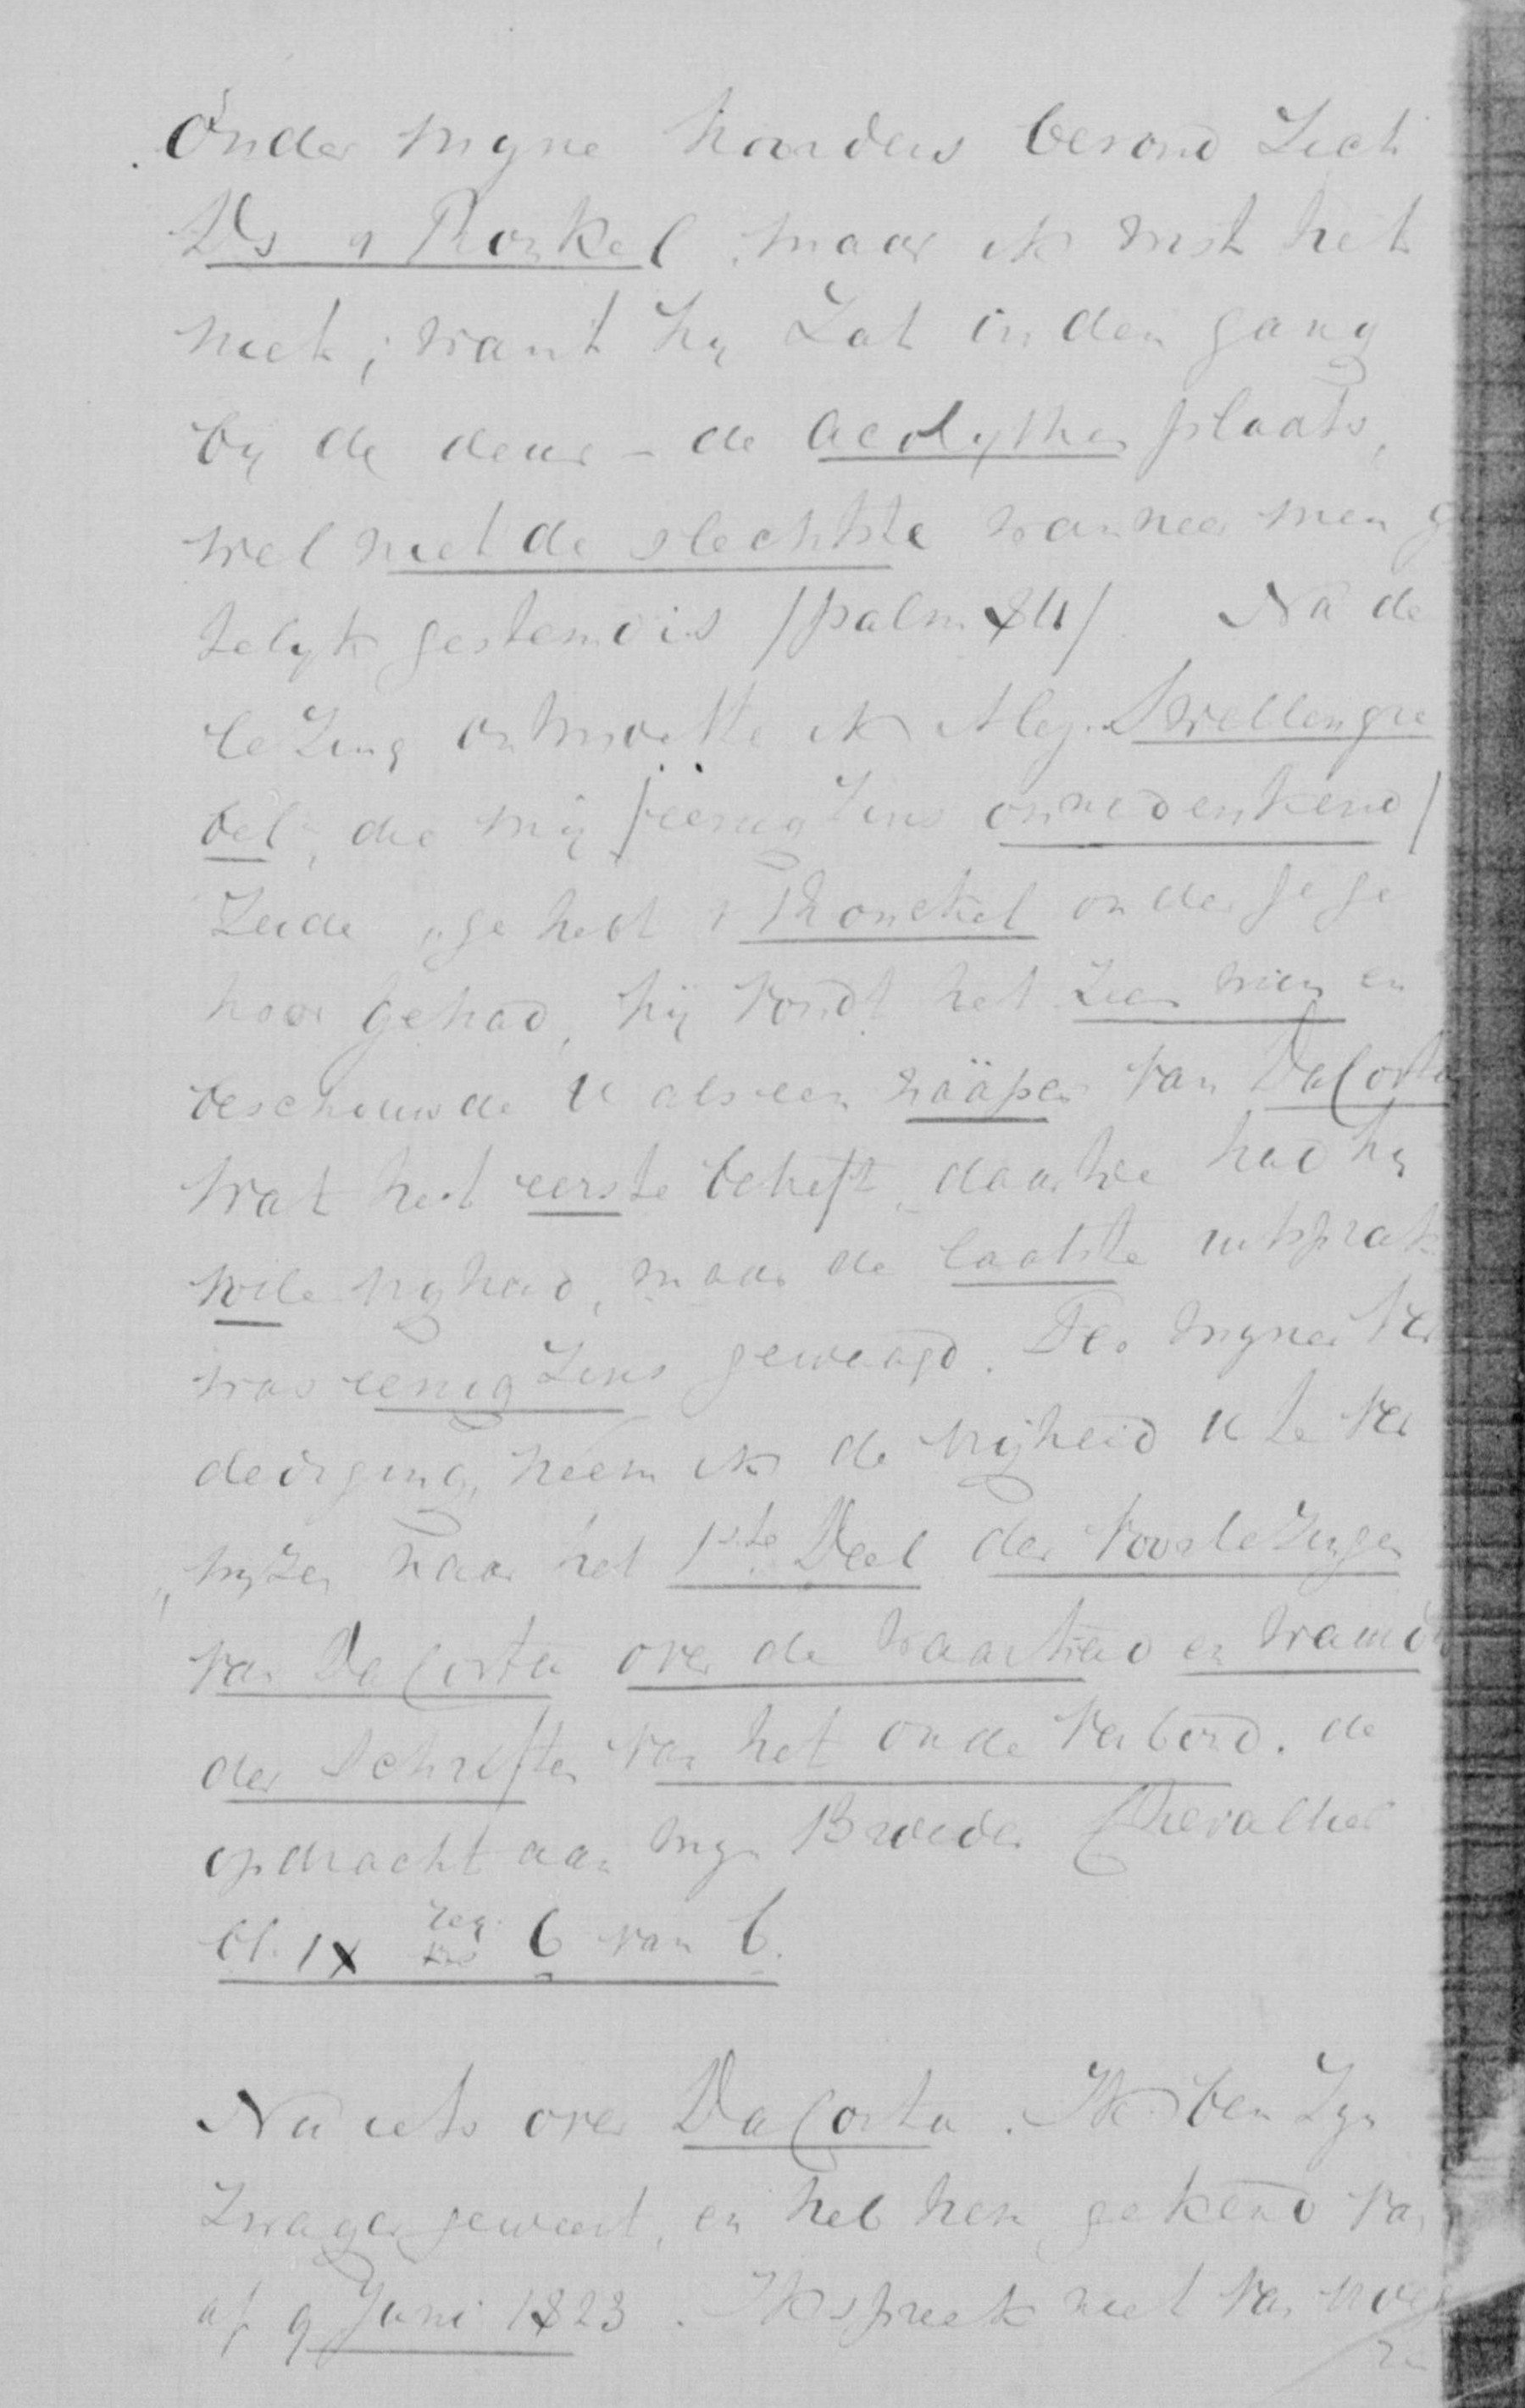 Onder myne hoorders bevond zich
Ds v Ronkel, maar ik wist het
niet; want hy zat in den gang
by de deur - de acolythen plaats,
wel niet de slechtste wanneer men g
telyk gestemd is /psalm 84/. Na de
lezing ontmoette ik Mej. Swellengre
bel, die mij /eenigzins onnadenkend/
zeide „ge hebt v Ronckel onder je ge
hoor gehad, hij vondt het zeer mien en
beschouwde u als een naäper van DaCosta
wat het eerste betreft, daartoe had hy
volle vryheid, maar de laatste uitspraak
was eenigzins gewaagd. Ter myner ver
dediging, neem ik de vrijheid u te ver
wyzen naar het 1ste Deel der voorlezingen
van DaCosta over de waarheid en waardy
der Schriften van het oude verbond. de
opdracht aan myn Broeder Chevallier
bl. IX reg. 6 van b.
Nu iets over DaCosta. Ik ben zyn
zwager geweest, en heb hem gekend van
af 9 Juni 1823. Ik spreek niet van